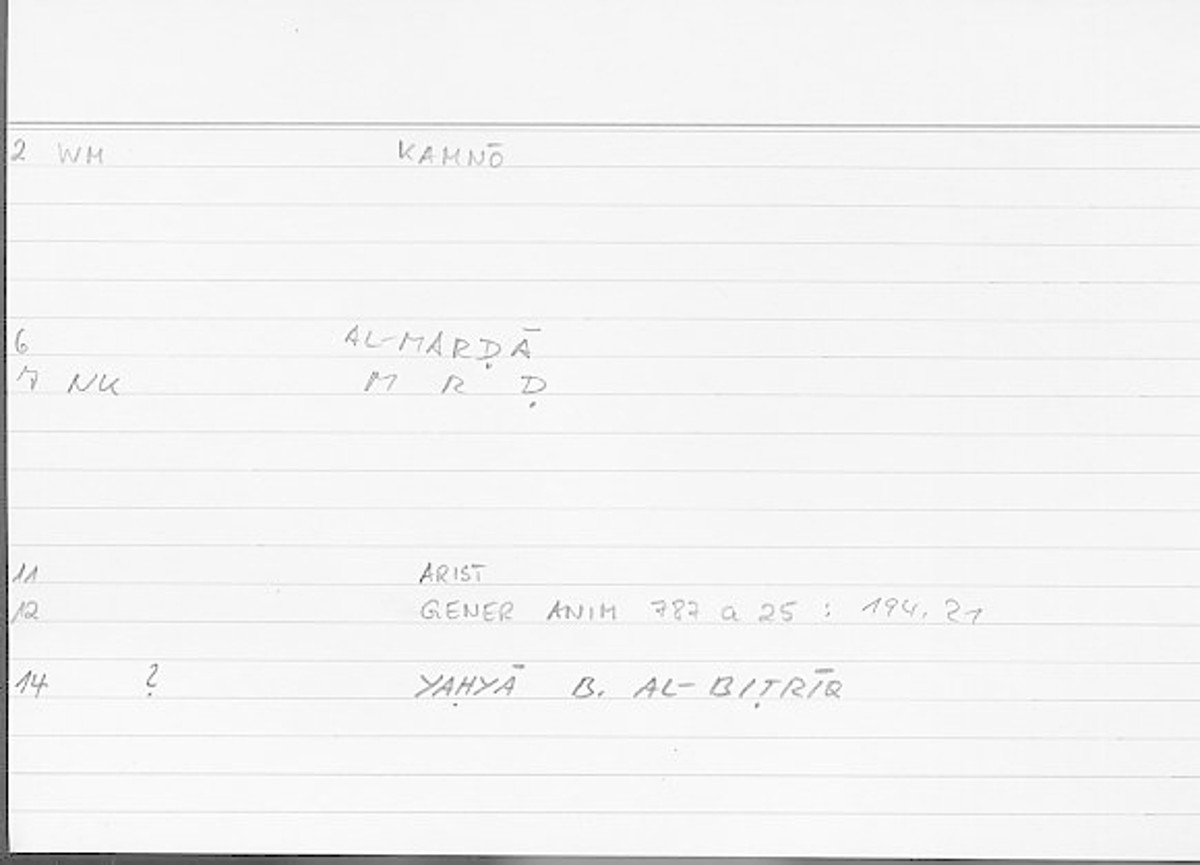 2 WM KAMNŌ
6 AL-MARḌĀ
7 NK M R Ḍ
11 ARIST
12 GENER ANIM 787 a 25 : 194.21
14 ? YAḤYĀ B. AL-BIṬRĪQ